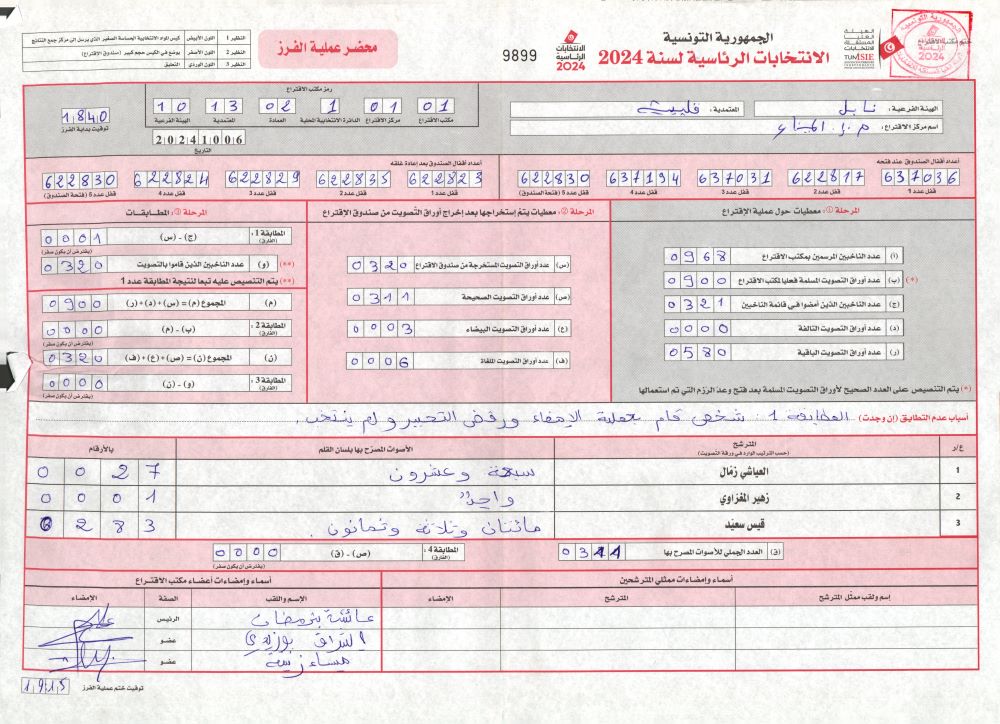 الجمهورية التونسية
الانتخابات الرئاسية لسنة 2024
الانتخابات الرئاسية 2024
9899
محضر عملية الفرز
النظير 1 اللون الأبيض
النظير 2 اللون الأصفر يوضع في الكيس حجم كبير (صندوق الاقتراع)
النظير 3 اللون الوردي التعليق
الهيئة الفرعية: نابل المعتمدية: قليبية
اسم مركز الاقتراع:
رمز مكتب الاقتراع
01 01 1 02 13 10
مكتب الاقتراع مركز الاقتراع الدائرة الانتخابية المحلية العمادة المعتمدية الهيئة الفرعية
20241006
التاريخ
1840
توقيت بداية الفرز
أعداد أقفال الصندوق عند فتحه
637036 622817 637031 637194 622830
قفل عدد 1 قفل عدد 2 قفل عدد 3 قفل عدد 4 قفل عدد 5 (فتحة الصندوق)
أعداد أقفال الصندوق بعد إعادة غلقه
622823 622835 622829 622824 622830
قفل عدد 1 قفل عدد 2 قفل عدد 3 قفل عدد 4 قفل عدد 5 (فتحة الصندوق)
المرحلة ①: معطيات حول عملية الإقتراع
(أ) عدد الناخبين المرسمين بمكتب الاقتراع 0968
(ب) عدد أوراق التصويت المسلمة فعليا لمكتب الاقتراع 0900 (*)
(ج) عدد الناخبين الذين أمضوا في قائمة الناخبين 0321
(د) عدد أوراق التصويت التالفة 0000
(ر) عدد أوراق التصويت الباقية 0580
(*) يتم التنصيص على العدد الصحيح لأوراق التصويت المسلمة بعد فتح وعد الرزم التي تم استعمالها
المرحلة ②: معطيات يتم إستخراجها بعد إخراج أوراق التصويت من صندوق الإقتراع
(س) عدد أوراق التصويت المستخرجة من صندوق الاقتراع 0320
(ص) عدد أوراق التصويت الصحيحة 0311
(ع) عدد أوراق التصويت البيضاء 0003
(ف) عدد أوراق التصويت الملغاة 0006
المرحلة ③: المطابقات
المطابقة 1: (الفارق) (ج) - (س) 0001
(يفترض أن يكون صفر)
(**) (و) عدد الناخبين الذين قاموا بالتصويت 0320
(**) يتم التنصيص عليه تبعا لنتيجة المطابقة عدد 1
(م) المجموع (م) = (س) + (د) + (ر) 0900
المطابقة 2: (الفارق) (ب) - (م) 0000
(يفترض أن يكون صفر)
(ن) المجموع (ن) = (ص) + (ع) + (ف) 0320
المطابقة 3: (الفارق) (و) - (ن) 0000
(يفترض أن يكون صفر)
أسباب عدم التطابق (إن وجدت) المطابقة 1: شخص قام بعملية الإمضاء ورفض التعبير و لم ينتخب.
ع/ر المترشح الأصوات المصرّح بها بلسان القلم بالأرقام
(حسب الترتيب الوارد في ورقة التصويت)
1 العياشي زمّال سبعة وعشرون 0027
2 زهير المغزاوي واحد 0001
3 قيس سعيّد مائتان وثلاثة وثمانون 0283
(ق) العدد الجملي للأصوات المصرح بها 0311
المطابقة 4: (الفارق) (ص) - (ق) 0000
(يفترض أن يكون صفر)
أسماء وإمضاءات ممثلي المترشحين
إسم ولقب ممثل المترشح المترشح الإمضاء
أسماء وإمضاءات أعضاء مكتب الاقتراع
الإسم واللقب الصفة الإمضاء
عائشة بنرمضان الرئيس
عضو
عضو
1915
توقيت ختم عملية الفرز